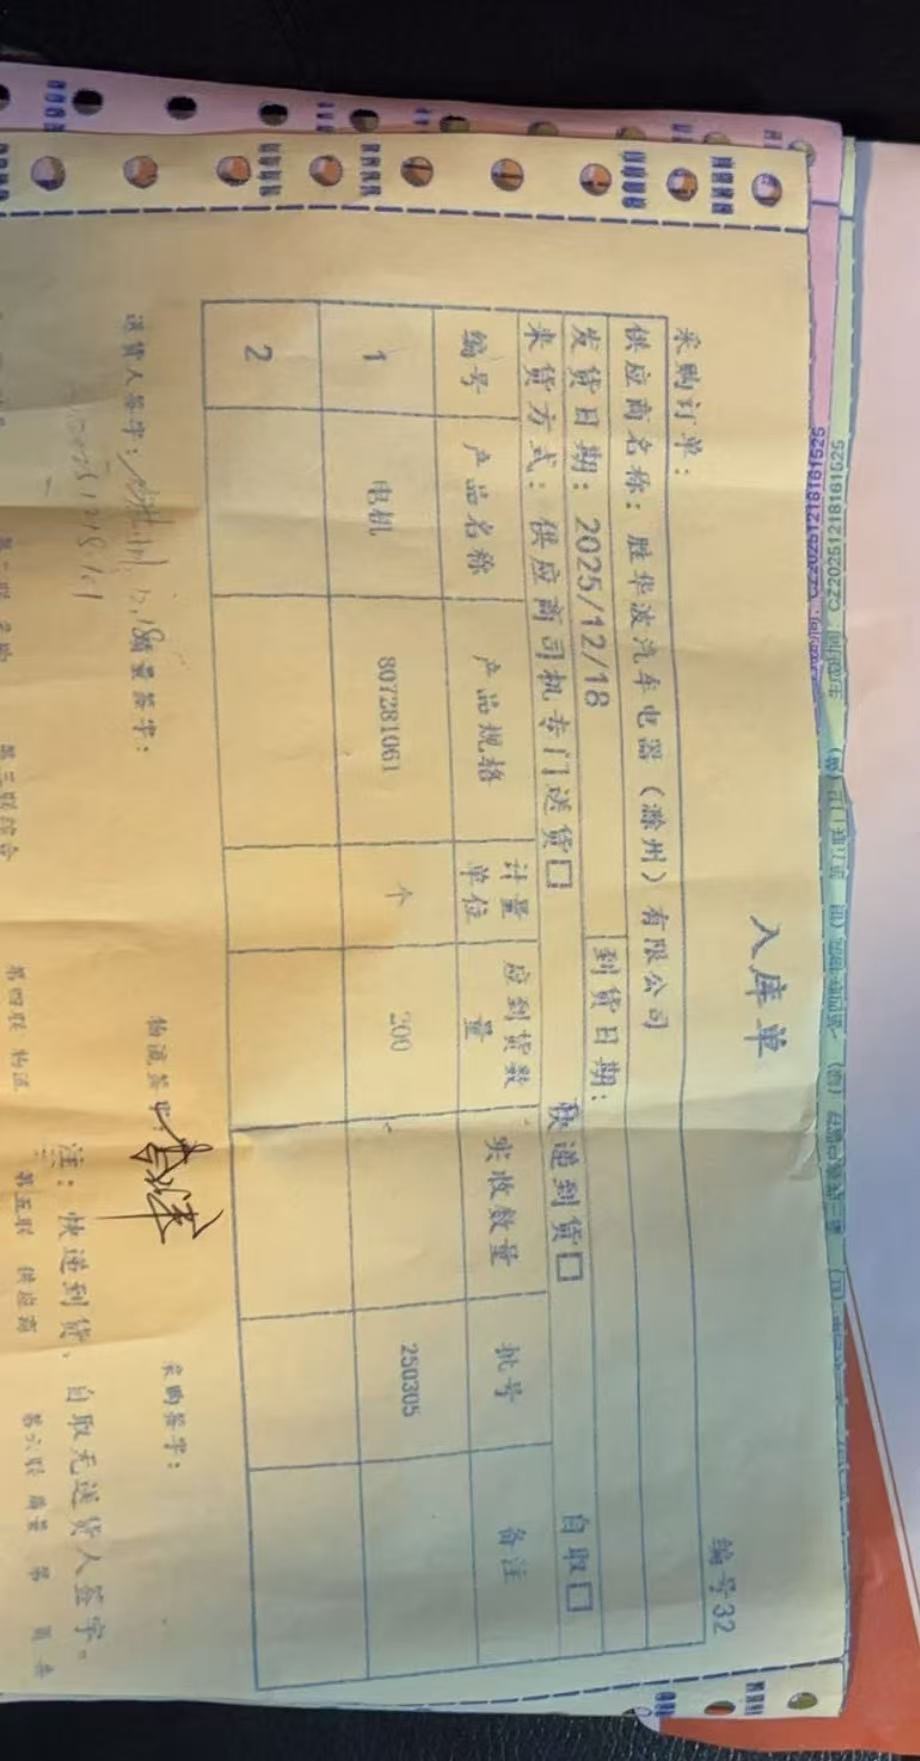 入库单
编号32
采购订单：
供应商名称：胜华波汽车电器（滁州）有限公司
发货日期：2025/12/18 到货日期：
来货方式：供应商司机专门送货□ 快递到货□ 自取□
编号 产品名称 产品规格 计量单位 应到货数量 实收数量 批号 备注
1 电机 807281061 个 200 250305
2
送货人签字： 质量签字： 物流签字： 采购签字：
注：快递到货、自取无送货人签字。
第三联综合 第四联 物流 第五联 供应商 第六联 质量
CZ20251218161525
CZ20251218161525